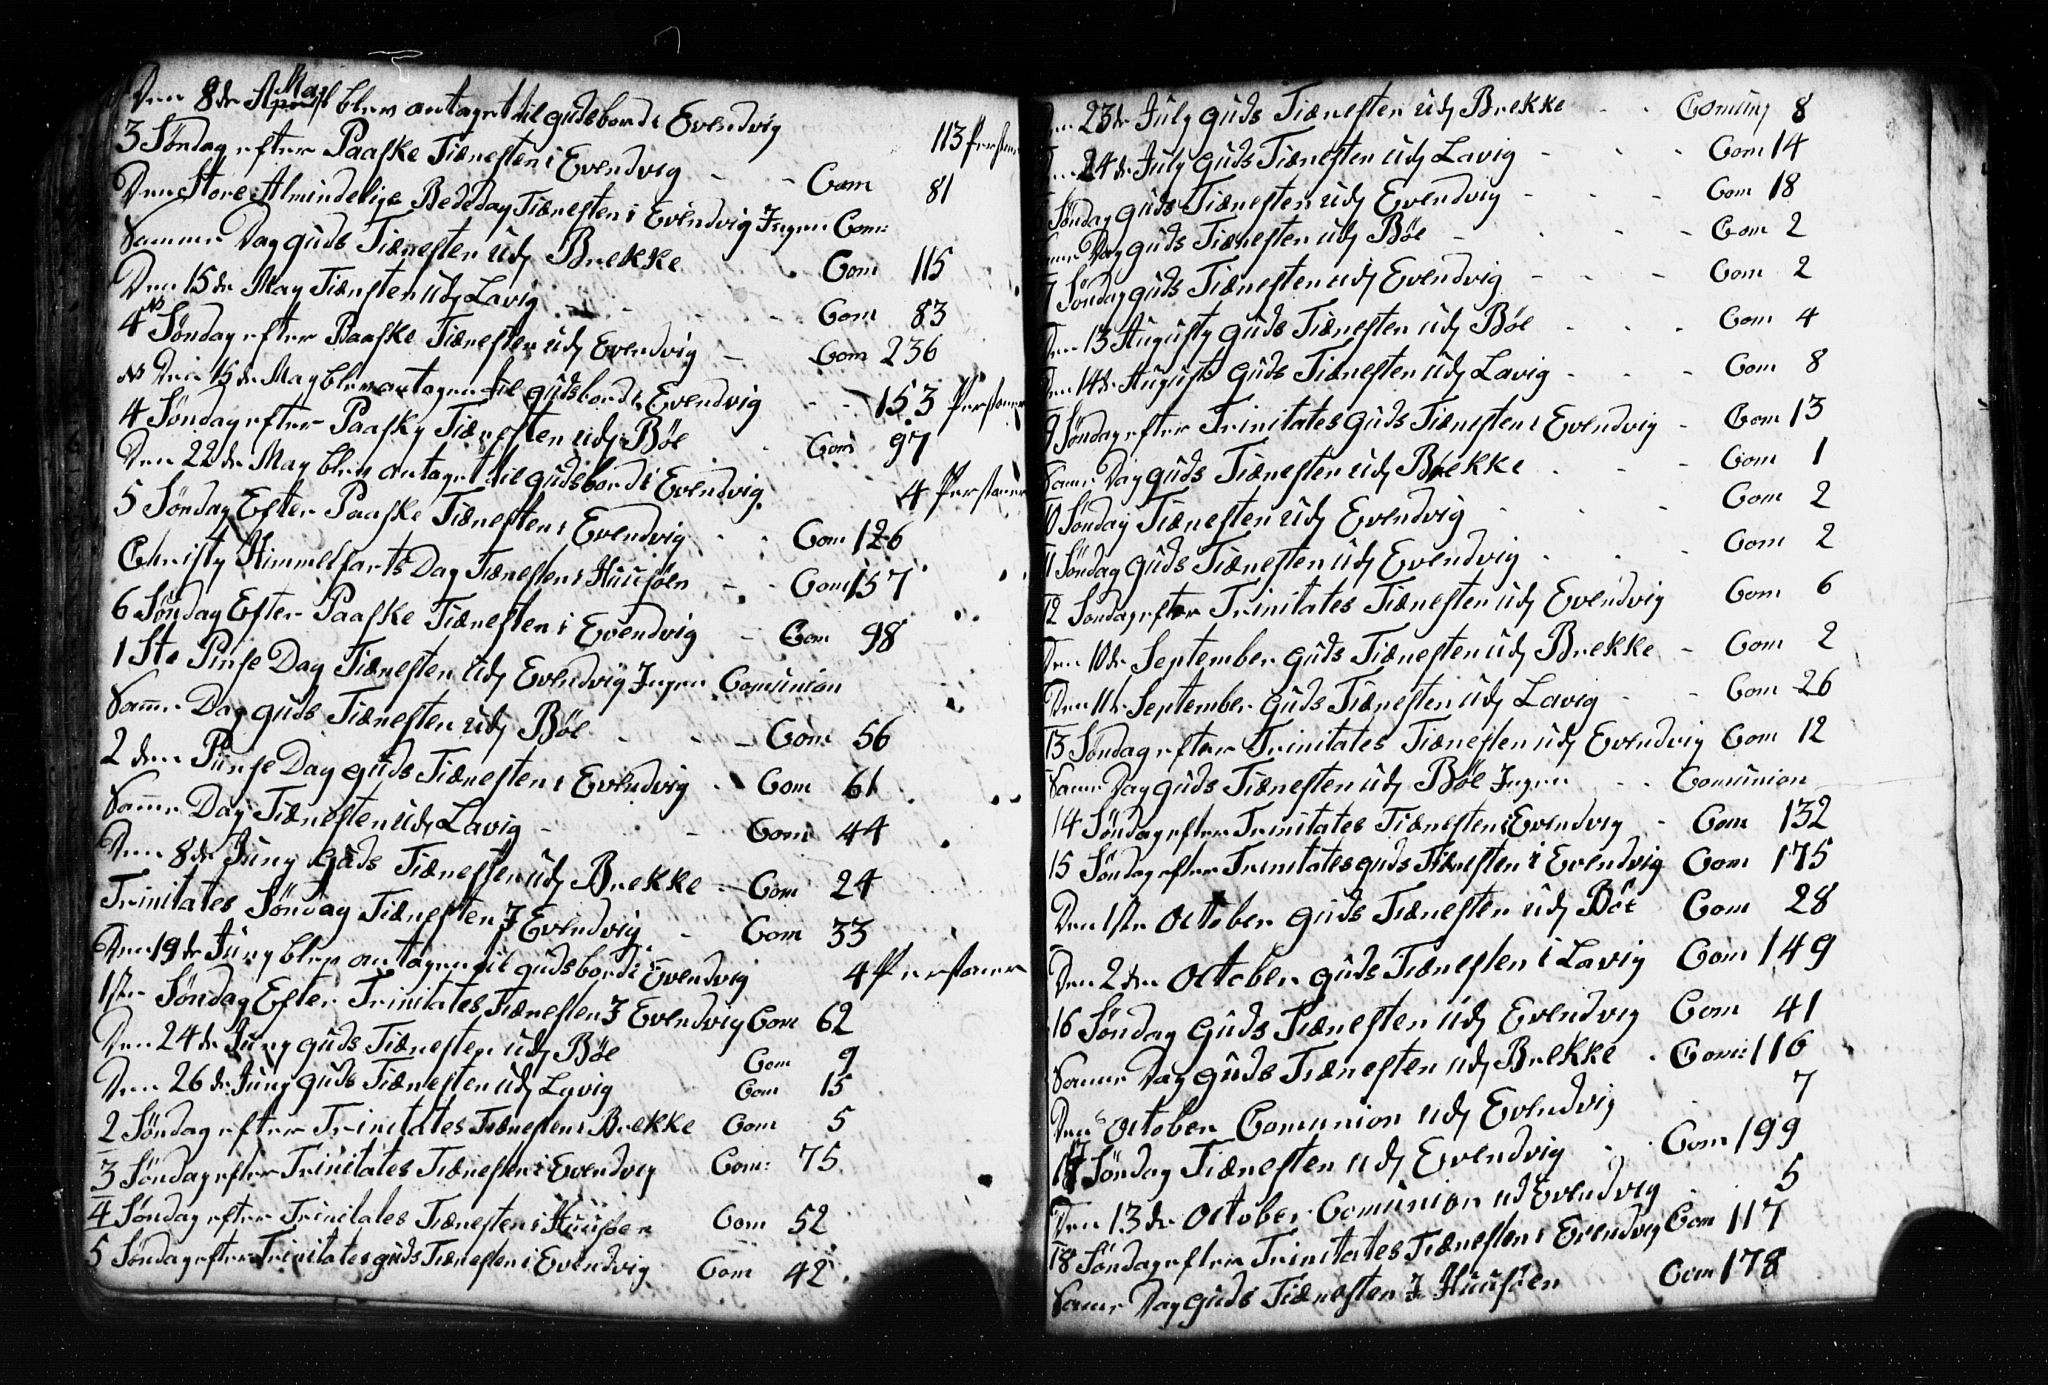 Den 8de May blev antaget til gudsbord i Evendvig 113 Perstoner
3 Søndag efter Paaske Tiænesten i Evendvig - - Com 81
Den Store Almindelige Bededag Tiænesten i Evendvig Ingen Com:
Samme Dag guds Tiænesten udj Brekke Com 115
Den 15de May Tiænsten udj Lavig - - - Com 83
4 Søndag efter Paaske Tiænesten udj Evendvig - Com 236
NB Den 15de May blev antagen til gudsbord i Evendvig - - 153 Perstoner
4 Søndag efter Paasky Tiænesten udj Bøe Com 97
Den 22de May blev antaget til gudsbord i Evendvig 4 Perstoner
5 Søndag Efter Paaske Tiænesten i Evendvig - - Com 126
Christy Himmelfarts Dag Tiænesten i Huusøen - - Com 157
6 Søndag Efter Paaske Tiænesten i Evendvig - Com 98
1 Ste Pinse Dag Tiænesten udj Evendvig Ingen Comunion
Samme Dag guds Tiænesten udj Bøe - - - Com 56
2 den Pinse Dag guds Tiænesten i Evendvig - Com 61
Samme Dag Tiænesten udj Lavig - - Com 44
Den 8de Juny guds Tiænesten udj Brekke - Com 24
Trinitates Søndag Tiænesten I Evendvig - Com 33
Den 19de Juny blev antagen til gudsbord i Evendvig 4 Perstoner
1ste Søndag Efter Trinitates Tiænesten I Evendvig Com 62
Den 24de Juny guds Tiænesten udj Bøe Com 9
Den 26de Juny guds Tiænesten udj Lavig Com 15
2 Søndag efter Trinitates Tiænesten i Brekke Com 5
3 Søndag efter Trinitates Tiænesten i Evendvig Com: 75
4 Søndag efter Trinitates Tiænesten i Huusøen Com 52
5 Søndag efter Trinitates guds Tiænesten i Evendvig Com 42
23de July guds Tiænesten udj Brekke - - Comuny 8
24de July guds Tiænesten udj Lavig - - - Com 14
Søndag guds Tiænesten udj Evendvig - - - Com 18
Dag guds Tiænesten udj Bøe - - - Com 2
7 Søndag guds Tiænesten udj Evendvig - - - Com 2
Den 13 Augusty guds Tiænesten udj Bøe - - - Com 4
Den 14de Augusti guds Tiænesten udj Lavig - - - Com 8
9 Søndag efter Trinitates guds Tiænesten i Evendvig - Com 13
Samme Dag guds Tiænesten udj Brekke - - - Com 1
10 Søndag Tiænesten udj Evendvig - - - Com 2
11 Søndag guds Tiænesten udj Evendvig - - - Com 2
12 Søndag efter Trinitates Tiænesten udj Evendvig Com 6
Den 10de September guds Tiænesten udj Brekke - Com 2
Den 11te September guds Tiænesten udj Lavig - - Com 26
13 Søndag efter Trinitates Tiænesten udj Evendvig Com 12
Samme Dag guds Tiænesten udj Bøe Ingen - - Comunion
14 Søndag efter Trinitates Tiænesten i Evendvig - Com 132
15 Søndag efter Trinitates guds Tiænesten i Evendvig Com 175
Den 1ste October guds Tiænesten udj Bøe Com 28
Den 2den October guds Tiænesten i Lavig Com 149
16 Søndag guds Tiænesten udj Evendvig Com 41
Samme Dag guds Tiænesten udj Brekke - Com: 116
Den October Comunion udj Evendvig 7
Søndag Tiænesten udj Evendvig - Com 199
Den 13de October Comunion ud Evendvig 5
18 Søndag efter Trinitates Tiænesten i Evendvig Com 117
Samme Dag guds Tiænesten I Huusøen Com 178